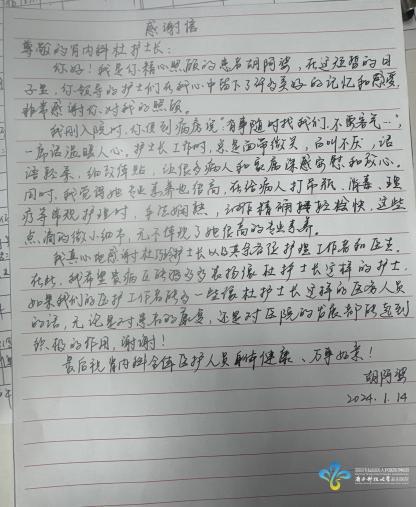 感谢信
尊敬的肾内科杜护士长：
你好！我是你精心照顾的患者胡阿婆，在这短暂的日
子里，你领导的护士们在我心中留下了许多美好的记忆和感受，
非常感谢你对我的照顾。
我刚入院时，你便到病房说"有事随时找我们，不要客气…"，
一席话温暖人心。护士长工作时，总是面带微笑，
语轻柔，细致体贴，让很多病人和家属深感安慰和放心。
同时，我觉得她专业素养也很高，在给病人打吊瓶、消毒、理
疗等常规护理时，手法娴熟，动作精确轻松快，这些
点滴的微小细节，无不体现了她很高的专业素养。
我真心地感谢杜护士长以及其余各位护理工作者和医生。
在此，我希望贵病区能够多多表扬像杜护士长这样的护士。
如果我们的医护工作者能多一些像杜护士长这样的医务人员
的话，无论是对患者的康复，还是对医院的发展都能起到
积极的作用，谢谢！
最后祝肾内科全体医护人员身体健康、万事如意！
胡阿婆
2024.1.14